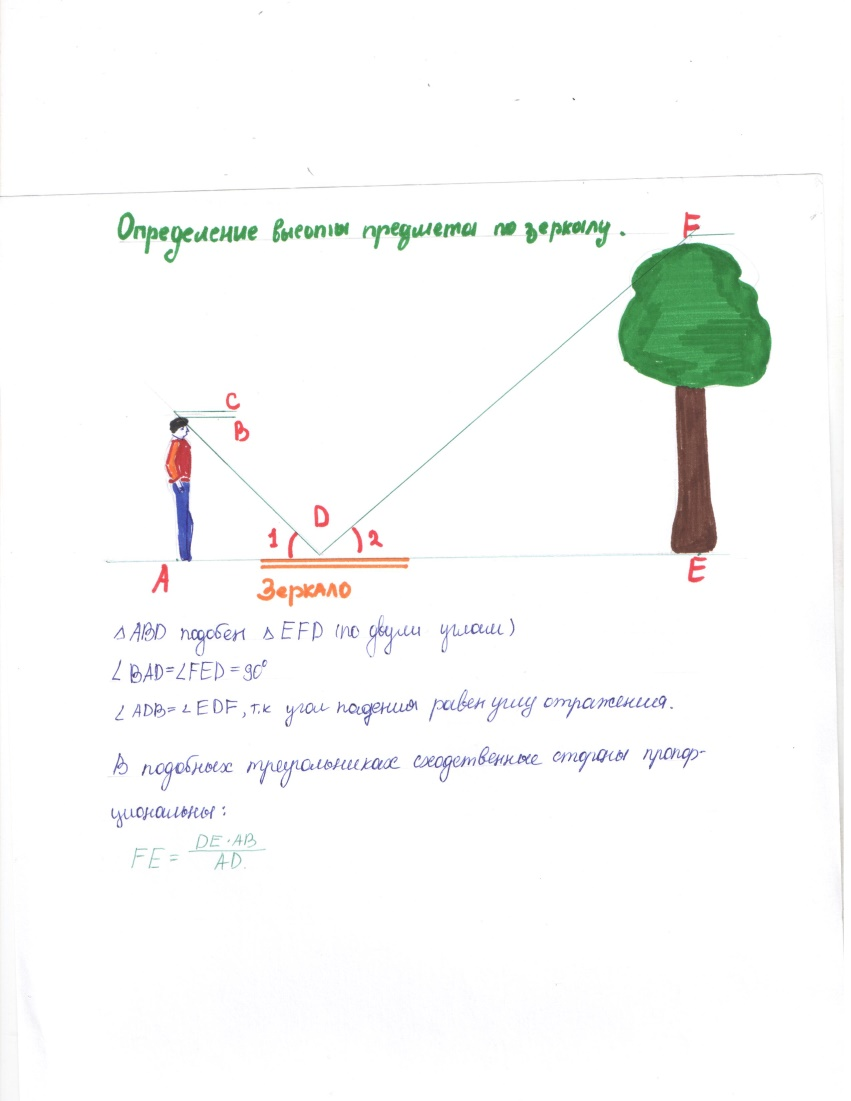 Определение высоты предмета по зеркалу.
F
C
B
D
1
2
A
E
Зеркало
△ ABD подобен △ EFD (по двум углам)
∠ BAD = ∠FED = 90°
∠ ADB = ∠ EDF, т.к угол падения равен углу отражения.
В подобных треугольниках сходственные стороны пропор-
циональны:
FE = DE · AB / AD.